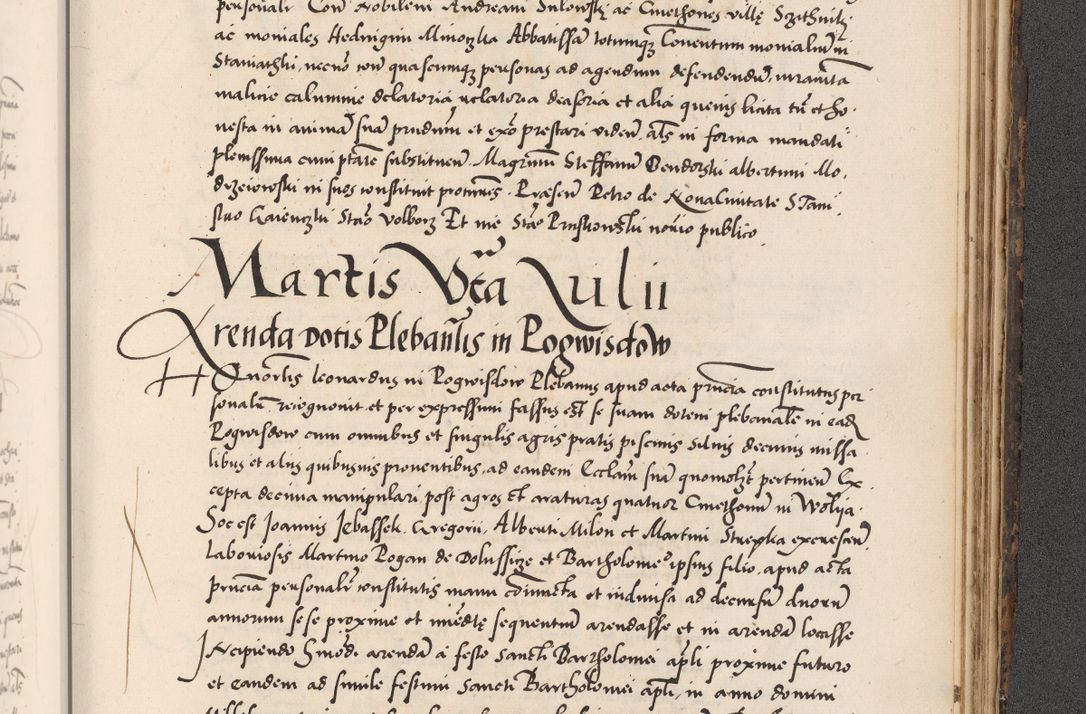 personali Con Nobilem Andream Sulowsky ac Cmethones ville
ac moniales Hedvigim Abbatissã totumq Conventum monialiũm
Staniathki, necnõ con quascumq personas ad agendum defendendũ, iurãmta
malicie calumnie delatoria relatoria deasoria et alia quevis licita tñ et ho
nesta in animã suã prudum et prestari videñ als in forma mandati
plenissima cum ptãte substituendi Magrum Steffanũ Bendorski albertum Mo
in suos constituit Presen Petro de Novacivitate Stani
slao Stão Volborz Et me Stão notãrio publico
Martis Vta Iulii
Arenda dotis Plebanlis in Pogwisdow
Honorlis leonardus in Pogwisdow Plebanus apud acta prñcia constitutus per
sonalr recognovit et per expressum fassus est se suam dotem plebanalẽ in ead
Pogwisdow cum omnibus et singulis agris pratis piscinis silvis decimis missa
libus et aliis quibusvis proventibus, ad eandem Ecclam suã quomolzt pertineñ Ex
cepta decima manipulari post agros et araturas quatuor Cmethonũ in Wolya
Hoc est Joannis Jebassek, Gregorii, Alberti Milon et Martini Strepka excrescen
Laboriosis Martino Pogan de Dolussize et Bartholomeo ipsius filio, apud acta
prñcia personalr constitutis manu cõiuncta et indivisa ad decursũ duorũ
annorum sese proxime et imẽdte sequentiũ arendasse et in arendã locasse
Incipiendo hmõdi arendã a festo Sancti Bartholomei apli proxime futuro
et eandem ad simile festum Sancti Bartholomei apli, in anno domini